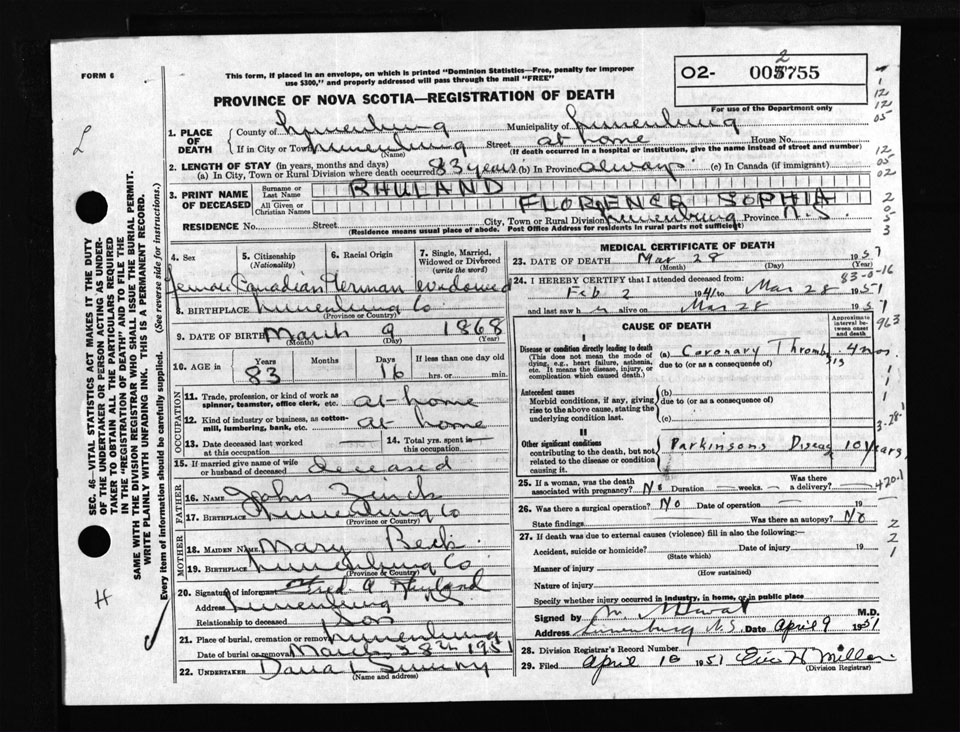 FORM 6
This form, if placed in an envelope, on which is printed "Dominion Statistics—Free, penalty for improper
use $300," and properly addressed will pass through the mail "FREE"
O2- 755
For use of the Department only
PROVINCE OF NOVA SCOTIA—REGISTRATION OF DEATH
1. PLACE OF DEATH
County of Lunenburg Municipality of Lunenburg
If in City or Town Lunenburg Street at home House No.
(Name) (If death occurred in a hospital or institution, give the name instead of street and number)
2. LENGTH OF STAY (in years, months and days)
(a) In City, Town or Rural Division where death occurred 83 years (b) In Province always (c) In Canada (if immigrant)
3. PRINT NAME OF DECEASED
Surname or Last Name RHULAND
All Given or Christian Names FLORENCE SOPHIA
RESIDENCE No. Street City, Town or Rural Division Lunenburg Province N.S.
(Residence means usual place of abode. Post Office Address for residents in rural parts not sufficient)
4. Sex
5. Citizenship (Nationality)
6. Racial Origin
7. Single, Married, Widowed or Divorced (write the word)
Female Canadian German widowed
8. BIRTHPLACE Lunenburg Co
(Province or Country)
9. DATE OF BIRTH March 9 1868
(Month) (Day) (Year)
10. AGE in Years Months Days If less than one day old
83 16 hrs. or min.
OCCUPATION
11. Trade, profession, or kind of work as spinner, teamster, office clerk, etc. at home
12. Kind of industry or business, as cotton-mill, lumbering, bank, etc. at home
13. Date deceased last worked at this occupation
14. Total yrs. spent in this occupation
15. If married give name of wife or husband of deceased deceased
FATHER
16. Name John Zinck
17. Birthplace Lunenburg Co
(Province or Country)
MOTHER
18. MAIDEN NAME Mary Beck
19. BIRTHPLACE Lunenburg Co.
(Province & Country)
20. Signature of informant Fred A Rhuland
Address Lunenburg NS
Relationship to deceased Son
21. Place of burial, cremation or removal Lunenburg
Date of burial or removal March 28th 1951
22. UNDERTAKER
(Name and address)
MEDICAL CERTIFICATE OF DEATH
23. DATE OF DEATH Mar 28 1951
(Month) (Day) (Year)
83-0-16
24. I HEREBY CERTIFY that I attended deceased from:
Feb 2 1941 to Mar 28 1951
and last saw her alive on Mar 28 1951
CAUSE OF DEATH
Approximate interval between onset and death
963
I
Disease or condition directly leading to death
(This does not mean the mode of dying, e.g., heart failure, asthenia, etc. It means the disease, injury, or complication which caused death.)
(a) Coronary Thrombosis 4 mos.
due to (or as a consequence of)
Antecedent causes
Morbid conditions, if any, giving rise to the above cause, stating the underlying condition last.
(b)
due to (or as a consequence of)
(c)
3-28
II
Other significant conditions
contributing to the death, but not related to the disease or condition causing it.
Parkinsons Disease 10 Years
25. If a woman, was the death associated with pregnancy? No Duration weeks. Was there a delivery?
420.1
26. Was there a surgical operation? No Date of operation 19
State findings Was there an autopsy? No
27. If death was due to external causes (violence) fill in also the following:—
Accident, suicide or homicide? Date of injury 19
(State which)
Manner of injury
(How sustained)
Nature of injury
Specify whether injury occurred in industry, in home, or in public place
Signed by M.D.
Address Lunenburg N.S. Date April 9 1951
28. Division Registrar's Record Number
29. Filed April 16 1951 Miller
(Division Registrar)
SEC. 46—VITAL STATISTICS ACT MAKES IT THE DUTY
OF THE UNDERTAKER OR PERSON ACTING AS UNDER-
TAKER TO OBTAIN ALL THE PARTICULARS REQUIRED
IN THE "REGISTRATION OF DEATH" AND TO FILE THE
SAME WITH THE DIVISION REGISTRAR WHO SHALL ISSUE THE BURIAL PERMIT.
WRITE PLAINLY WITH UNFADING INK. THIS IS A PERMANENT RECORD.
Every item of information should be carefully supplied. (See reverse side for instructions.)
L
H